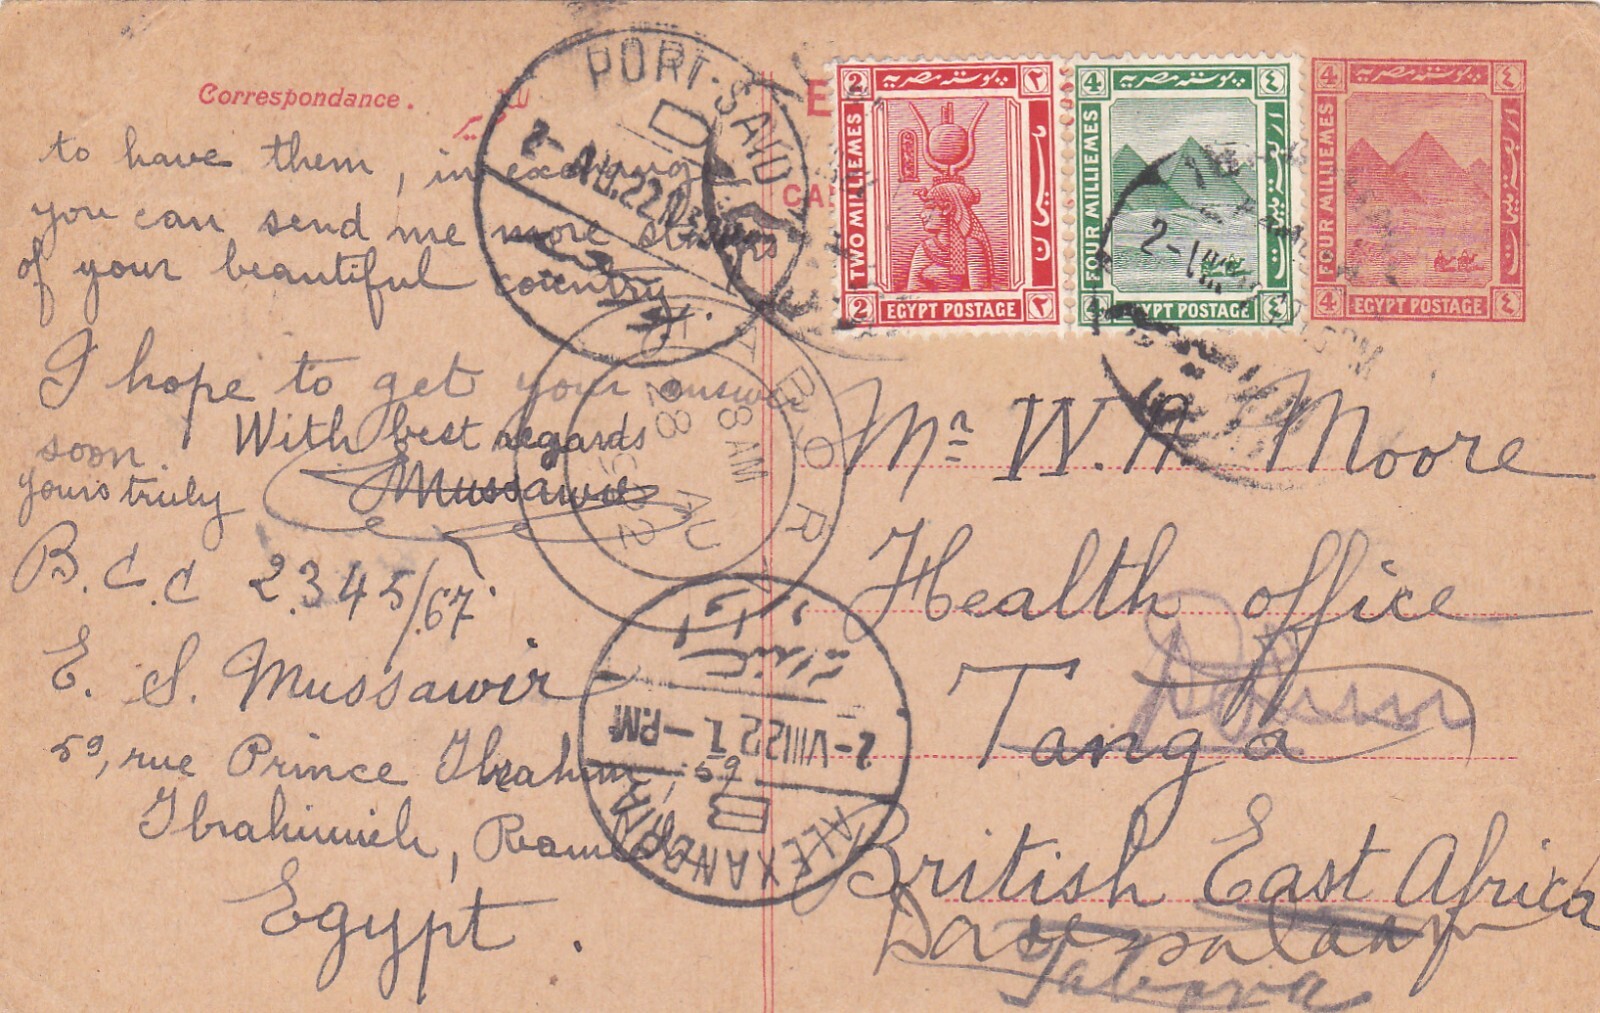 Correspondance.
to have them, in exchange
you can send me more stamps
of your beautiful country.
I hope to get your answer
soon. With best regards
yours truly Mussawir
B.C.C 2345/67.
E. S. Mussawir
59, rue Prince Ibrahim, 59
Ibrahimieh, Ramleh
Egypt.
PORT-SAID
D
2- AU.22
TABOR
8 AM
28 AU
1922
ALEXANDRIA
B
2-VIII 22 1-PM
2 بوسته مصريه ٢
TWO MILLIEMES
مليمان
2 EGYPT POSTAGE ٢
4 بوسته مصريه ٤
FOUR MILLIEMES
اربعة مليمات
4 EGYPT POSTAGE ٤
4 بوسته مصريه ٤
FOUR MILLIEMES
اربعة مليمات
4 EGYPT POSTAGE ٤
Mr W. A. Moore
Health office
Tanga
British East Africa
Daressalaam
Tabora